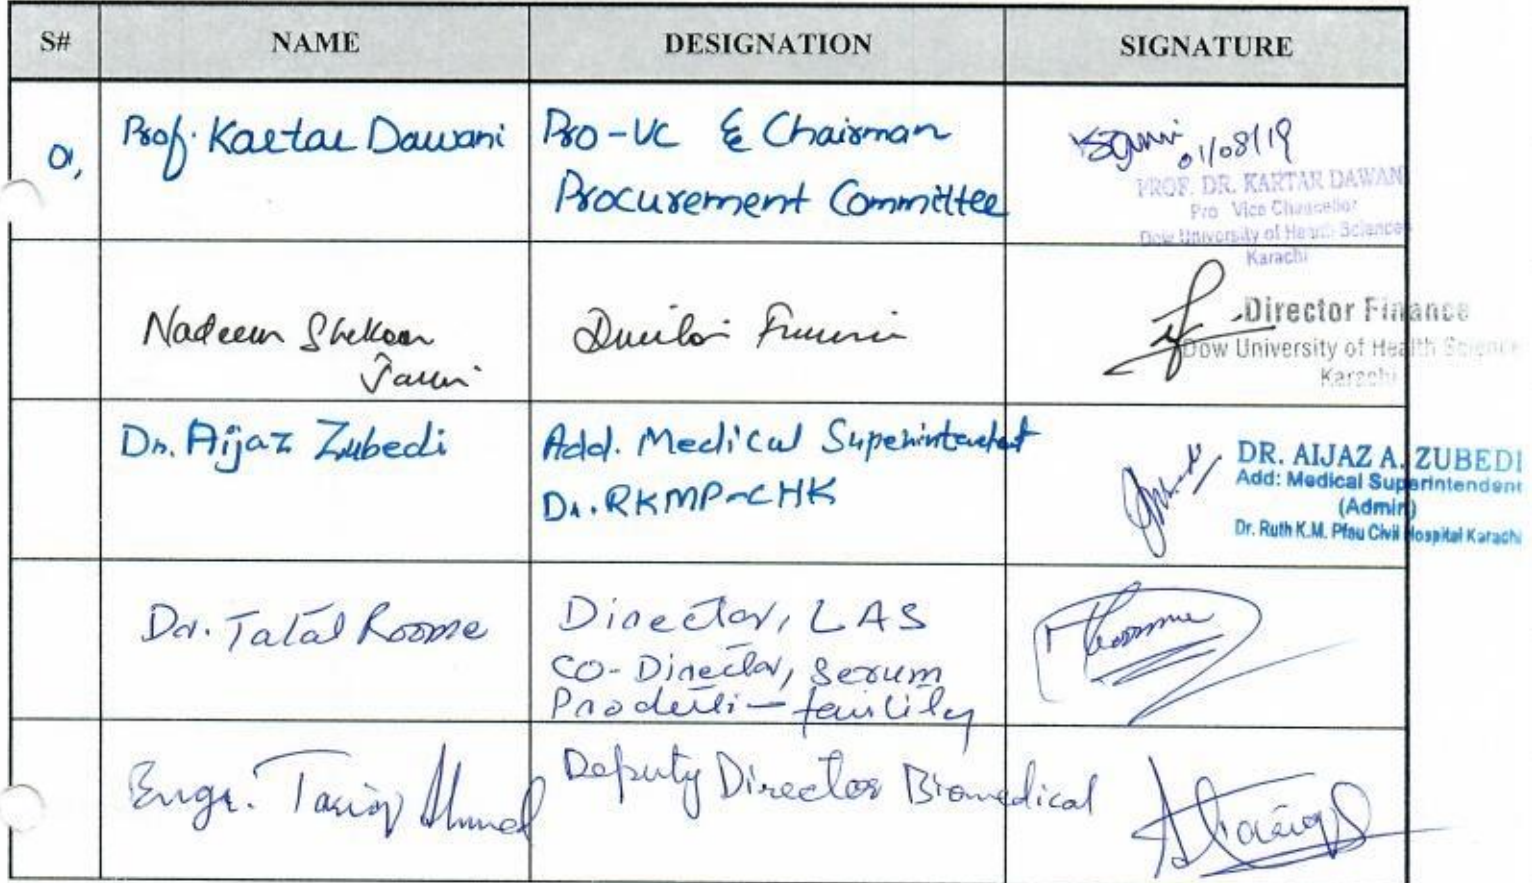 S# NAME DESIGNATION SIGNATURE
01, Prof. Kartar Dawani Pro-VC & Chairman
Procurement Committee
01/08/19
PROF. DR. KARTAR DAWANI
Pro Vice Chancellor
Dow University of Health Sciences
Karachi
Nadeem Shekoor
Director Finance
Director Finance
Dow University of Health Science
Karachi
Dr. Aijaz Zubedi
Add. Medical Superintendent
Dr. RKMP-CHK
DR. AIJAZ A. ZUBEDI
Add: Medical Superintendent
(Admin)
Dr. Ruth K.M. Pfau Civil Hospital Karachi
Dr. Talal Roome
Director, LAS
CO-Director, Serum
Production facility
Engr. Tariq Ahmed
Deputy Director Biomedical